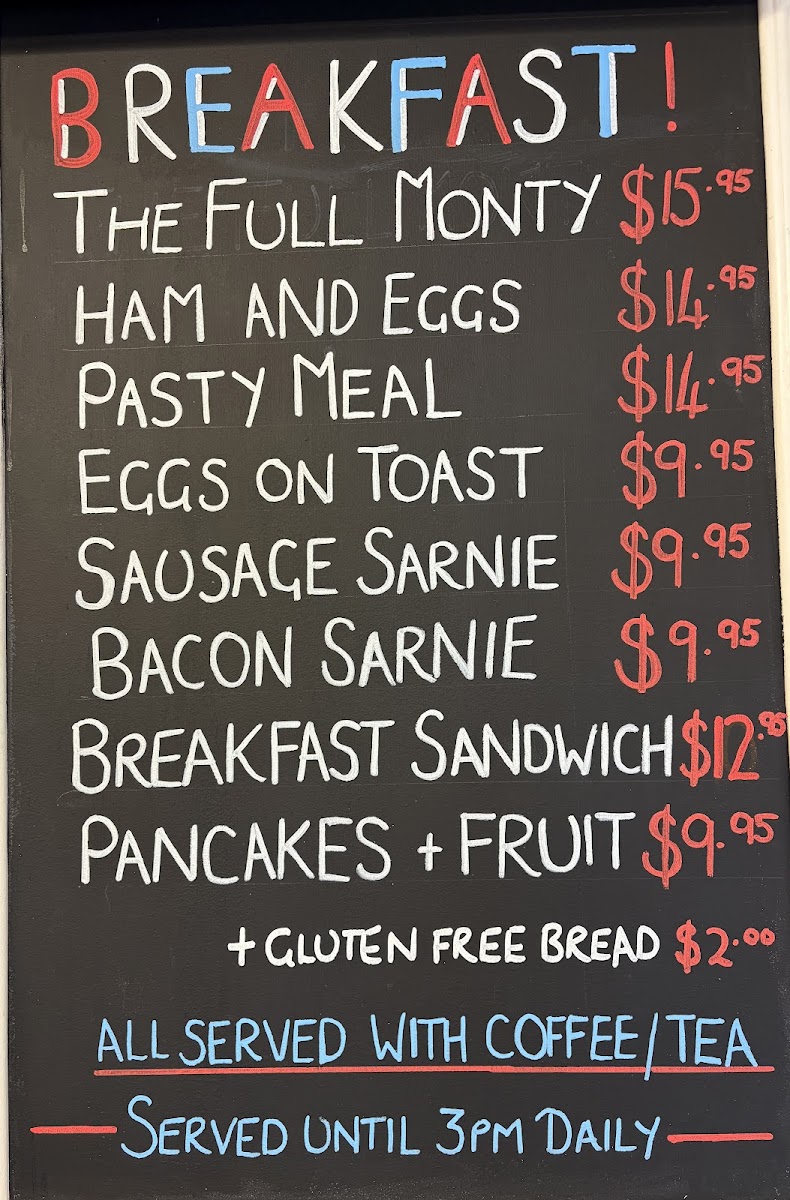 BREAKFAST!
THE FULL MONTY $15.95
HAM AND EGGS $14.95
PASTY MEAL $14.95
EGGS ON TOAST $9.95
SAUSAGE SARNIE $9.95
BACON SARNIE $9.95
BREAKFAST SANDWICH $12.95
PANCAKES + FRUIT $9.95
+ GLUTEN FREE BREAD $2.00
ALL SERVED WITH COFFEE/TEA
SERVED UNTIL 3PM DAILY